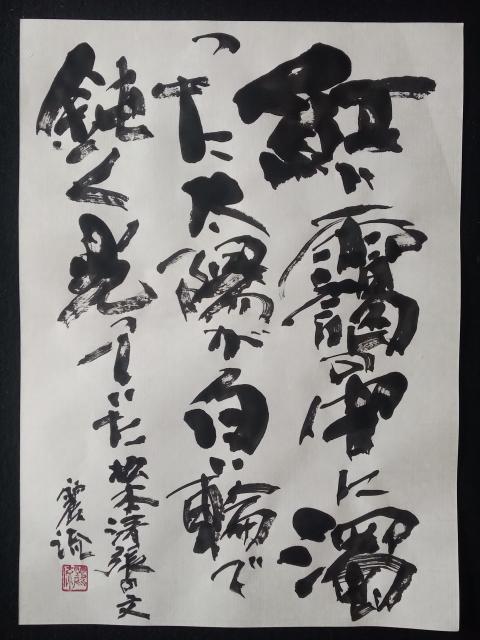 紅い靄の中に濁
った太陽が白い輪で
鈍く光っていた 松本清張の文